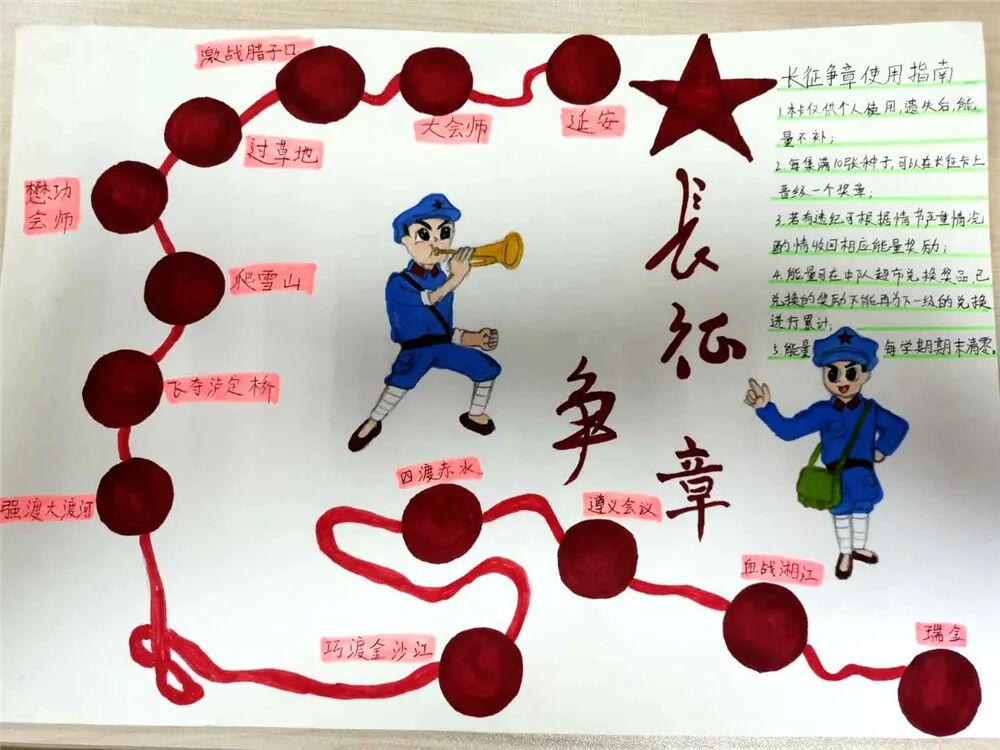 激战腊子口
大会师
延安
过草地
懋功
会师
爬雪山
飞夺泸定桥
强渡大渡河
四渡赤水
遵义会议
血战湘江
巧渡金沙江
瑞金
长征
争章
长征争章使用指南
1.本卡仅供个人使用,遗失后,能
量不补;
2.每集满10张种子,可以在长征卡上
晋级一个奖章;
3.若有违纪可根据情节严重情况
酌情收回相应能量奖励;
4.能量可在中队超市兑换奖品,已
兑换的奖励不能再为下一级的兑换
进行累计;
5.能量 每学期期末清零。